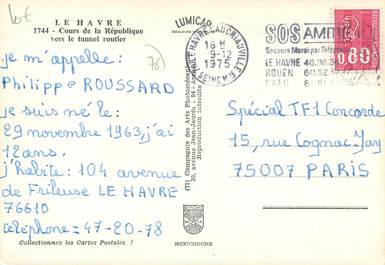 lot
LE HAVRE
1744 - Cours de la République
vers le tunnel routier
LUMICAP
je m'appelle:
Philippe ROUSSARD
je suis né le:
29 novembre 1963, j'ai
12 ans.
j'habite: 104 avenue
de Frileuse LE HAVRE
76610
téléphone = 47-20-78
Collectionnez les Cartes Postales !
MEXICHROME
Compagnie des Arts Photomécaniques
Reproduction interdite
LE HAVRE CAUCRIAUVILLE
16 H
9-12
1975
SEINE Mme
SOS AMITIE
Secours Moral par Téléphone
LE HAVRE
ROUEN
CAEN
0,80
Spécial TF1 Concorde
15, rue Cognac-Jay
75007 PARIS